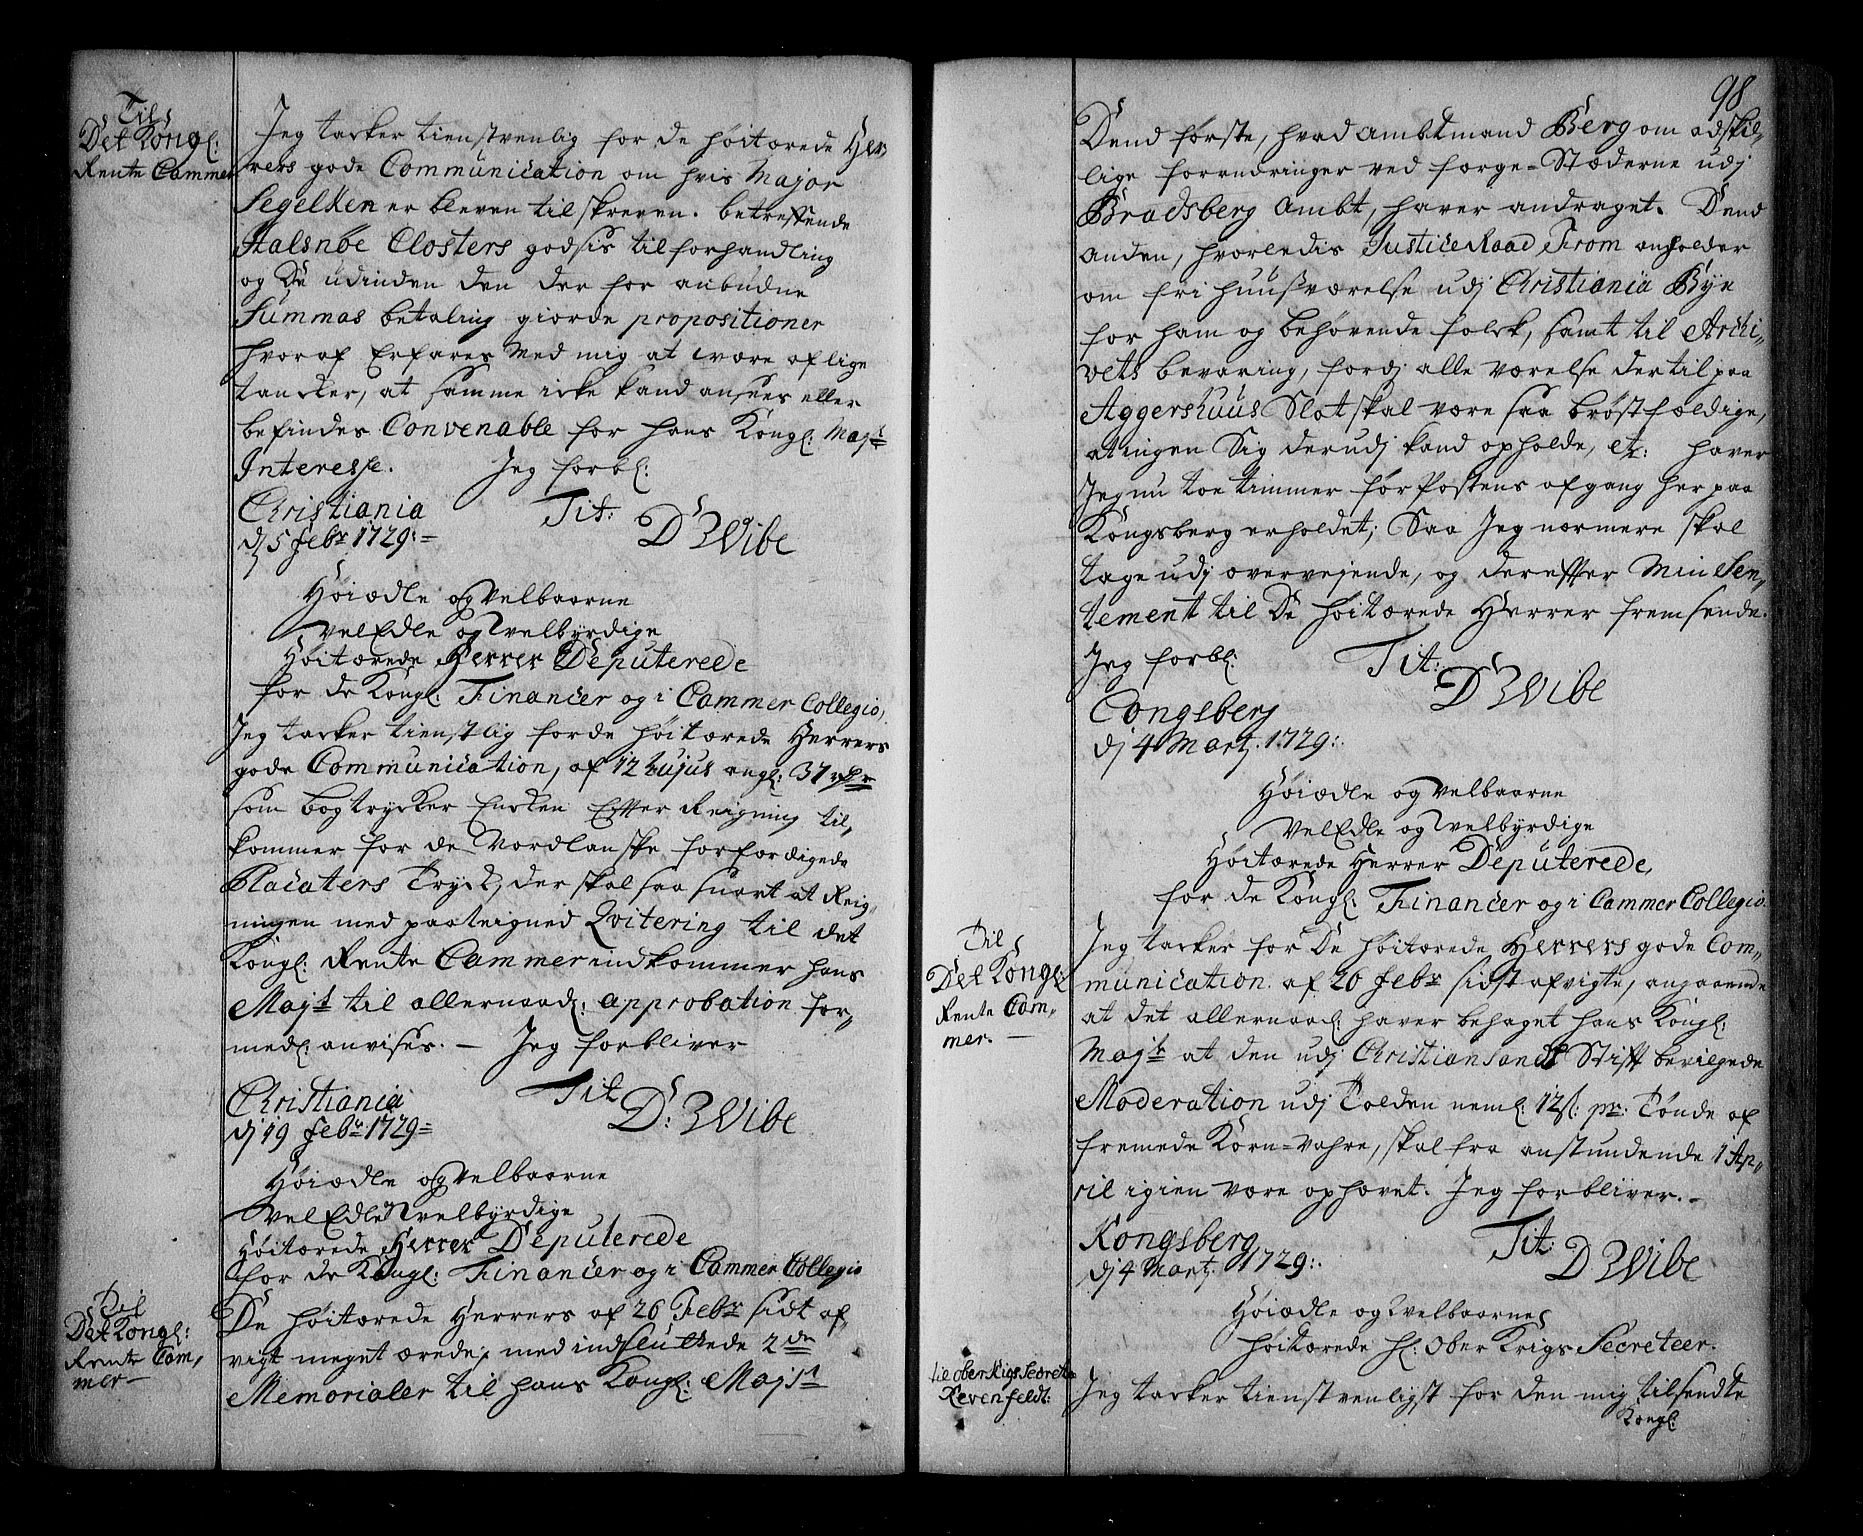 Til
Det Kongl:
Rente Cammer
Jeg tacker tienstvenlig for de høitærede Her-
rers gode Communication om hvis Major
Segelken er bleven tilskreven. betreffende
Halsnöe Closters godsis tilforhandling
og De udinden den der for anbudne
Summas betaling giorde propositioner
hvoraf Erfares med mig at være af lige
tancker, at samme icke kand ansees eller
befindes Convenable for hans Kongl: Majts
Interesse. Jeg forbl:
Christiania
dj 5 febr 1729:=
Tit:
D Wibe
Høiædle og Velbaarne
VelEdle og Velbyrdige
Høitærede Herrer Deputerede
for de Kongl: Financer og i Cammer Collegio,
Jeg tacker tienstlig for de høitærede Herrers
gode Communication, af 12 hujus angl: 37 rdr
som bogtrycker Encken Efter Reigning til-
kommer for de Nordlanske forfærdigede
Placaters Tryck, der skal saa snart at Reig-
ningen med paateigned Qvitering til det
Kongl: Rente Cammer indkommer hans
Majt til allernaad: approbation for-
medl: anvises. — Jeg forbliver
Christiania
dj 19 febr 1729=
Tit
D: Wibe
Høiædle og Velbaarne
VelEdle Velbyrdige
Høitærede Herrer Deputerede
for de Kongl: Financer og i Cammer Collegio
Til
Det Kongl:
Rente Cam-
mer—
De høitærede Herrers af 26 Febr sidst af-
vigt meget ærede, med indsluttede 2de
Memorialer til hans Kongl: Majst
98
Dend første, hvad Ambtmand Berg om adskil-
lige forandringer ved forge-Stæderne udj
Bradsberg Ambt, haver andraget. Dend
anden, hvorledis JusticeRaad From anholder
om fri huusværelse udj Christiania Bye
for ham og behøvende folck, samt til Archi-
vets bevaring, fordj alle værelse dertil paa
Aggershuus Slot skal være saa brøstfældige,
at ingen Sig derudj kand opholde, etc: haver
Jeg nu toe timmer før Postens afgang her paa
Kongsberg erholdet; Saa Jeg nærmere skal
tage udj overvejende, og derefter Min Sen-
tement til De høitærede Herrer fremsende.
Jeg forbl:
Tit:
D Wibe
Congsberg
dj 4 Martj. 1729:
Høiædle og Velbaarne
VelEdle og Velbyrdige
Høitærede Herrer Deputerede,
for de Kongl: Financer og i Cammer Collegio
Til
Det Kongl:
Rente Cam-
mer. —
Jeg tacker for De høitærede Herrers gode Com-
munication af 26 febr sidst afvigte, angaaende
at det allernaad: haver behaget hans Kongl:
Majts at den udj Christiansands Stift bevilgede
Moderation udj Tolden neml: 12 s: pr: Tönde af
fremede Korn-Vahre, skal fra anstundende 1 Ap-
ril igien være ophævet. Jeg forbliver.-
Kongsberg
dj 4 Martj 1729:
Tit:
D Wibe
Høiædle og Velbaarne
høitærede hl: Ober Krigs Secreteer.
til Ober Krigs Secreter
Revenfeldt:
Jeg tacker tienstvenligst for den mig tilsendte
Kongl: